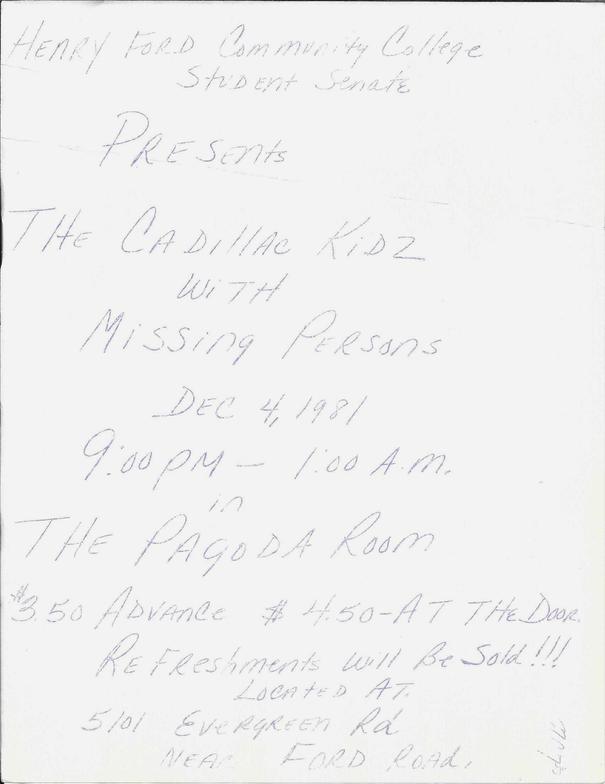 Henry Ford Community College
Student Senate
Presents
The Cadillac Kidz
With
Missing Persons
Dec 4, 1981
9:00 PM – 1:00 A.M.
in
The Pagoda Room
$3.50 Advance $4.50-At The Door.
Refreshments Will Be Sold!!!
Located At.
5101 Evergreen Rd
Near Ford Road.